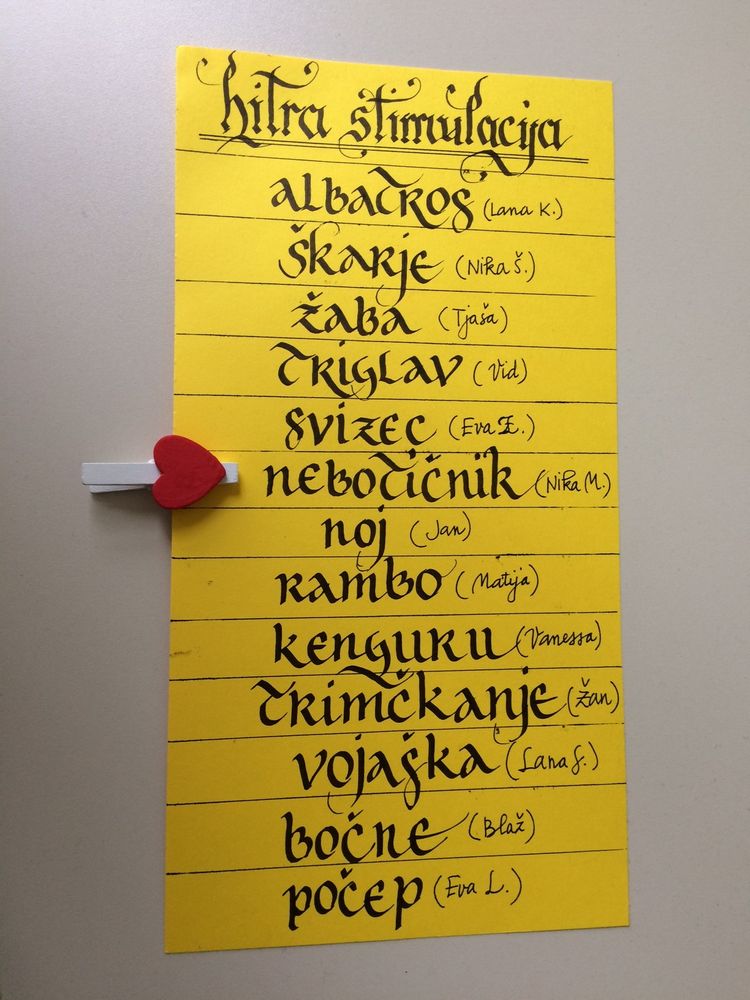 hitra stimulacija
albatros (Lana K.)
škarje (Nika Š.)
žaba (Tjaša)
triglav (Vid)
svizec (Eva Z.)
nebotičnik (Nika M.)
noj (Jan)
rambo (Matija)
kenguru (Vanessa)
trimčkanje (Žan)
vojaška (Lana S.)
bočne (Blaž)
počep (Eva L.)